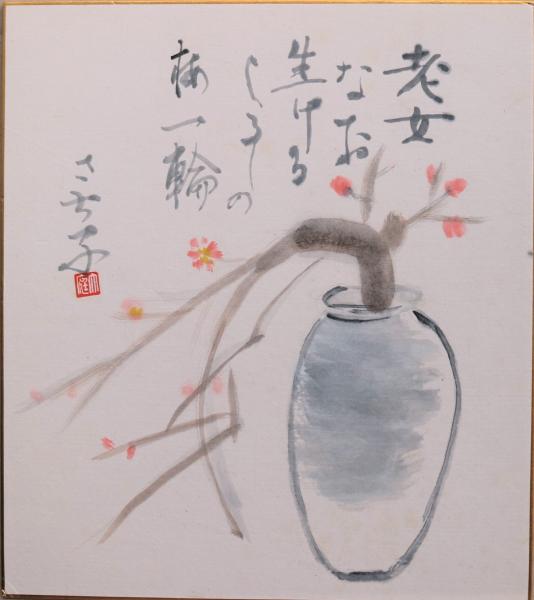 老女
なお
生ける
しるしの
梅一輪
さち子